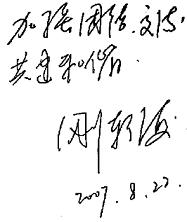 加强团结、交流.
共建和谐
2007.8.23.